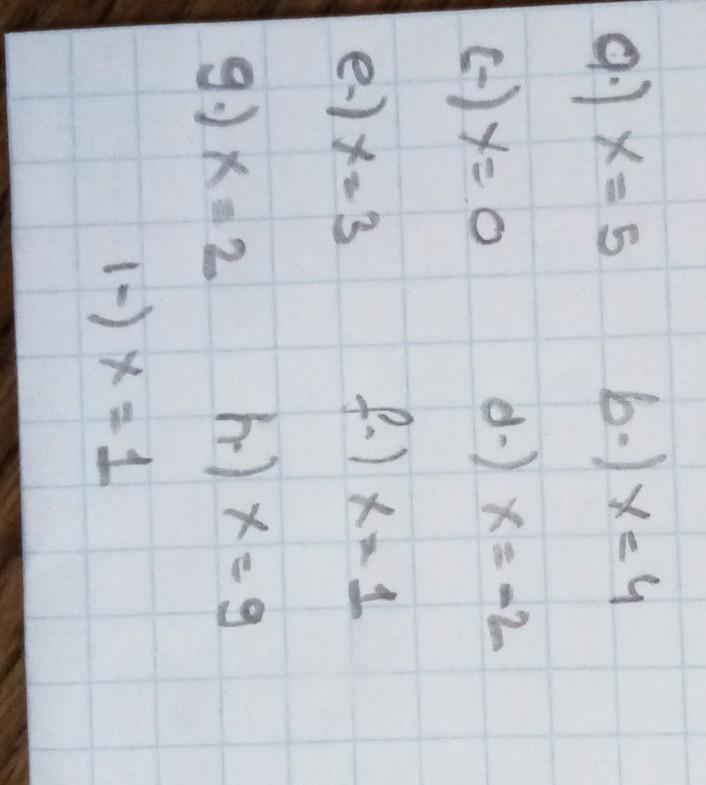 a.) x = 5 b.) x = 4
c-) x = 0 d.) x = -2
e.) x = 3 f.) x = 1
g.) x = 2 h.) x = 9
1-) x = 1